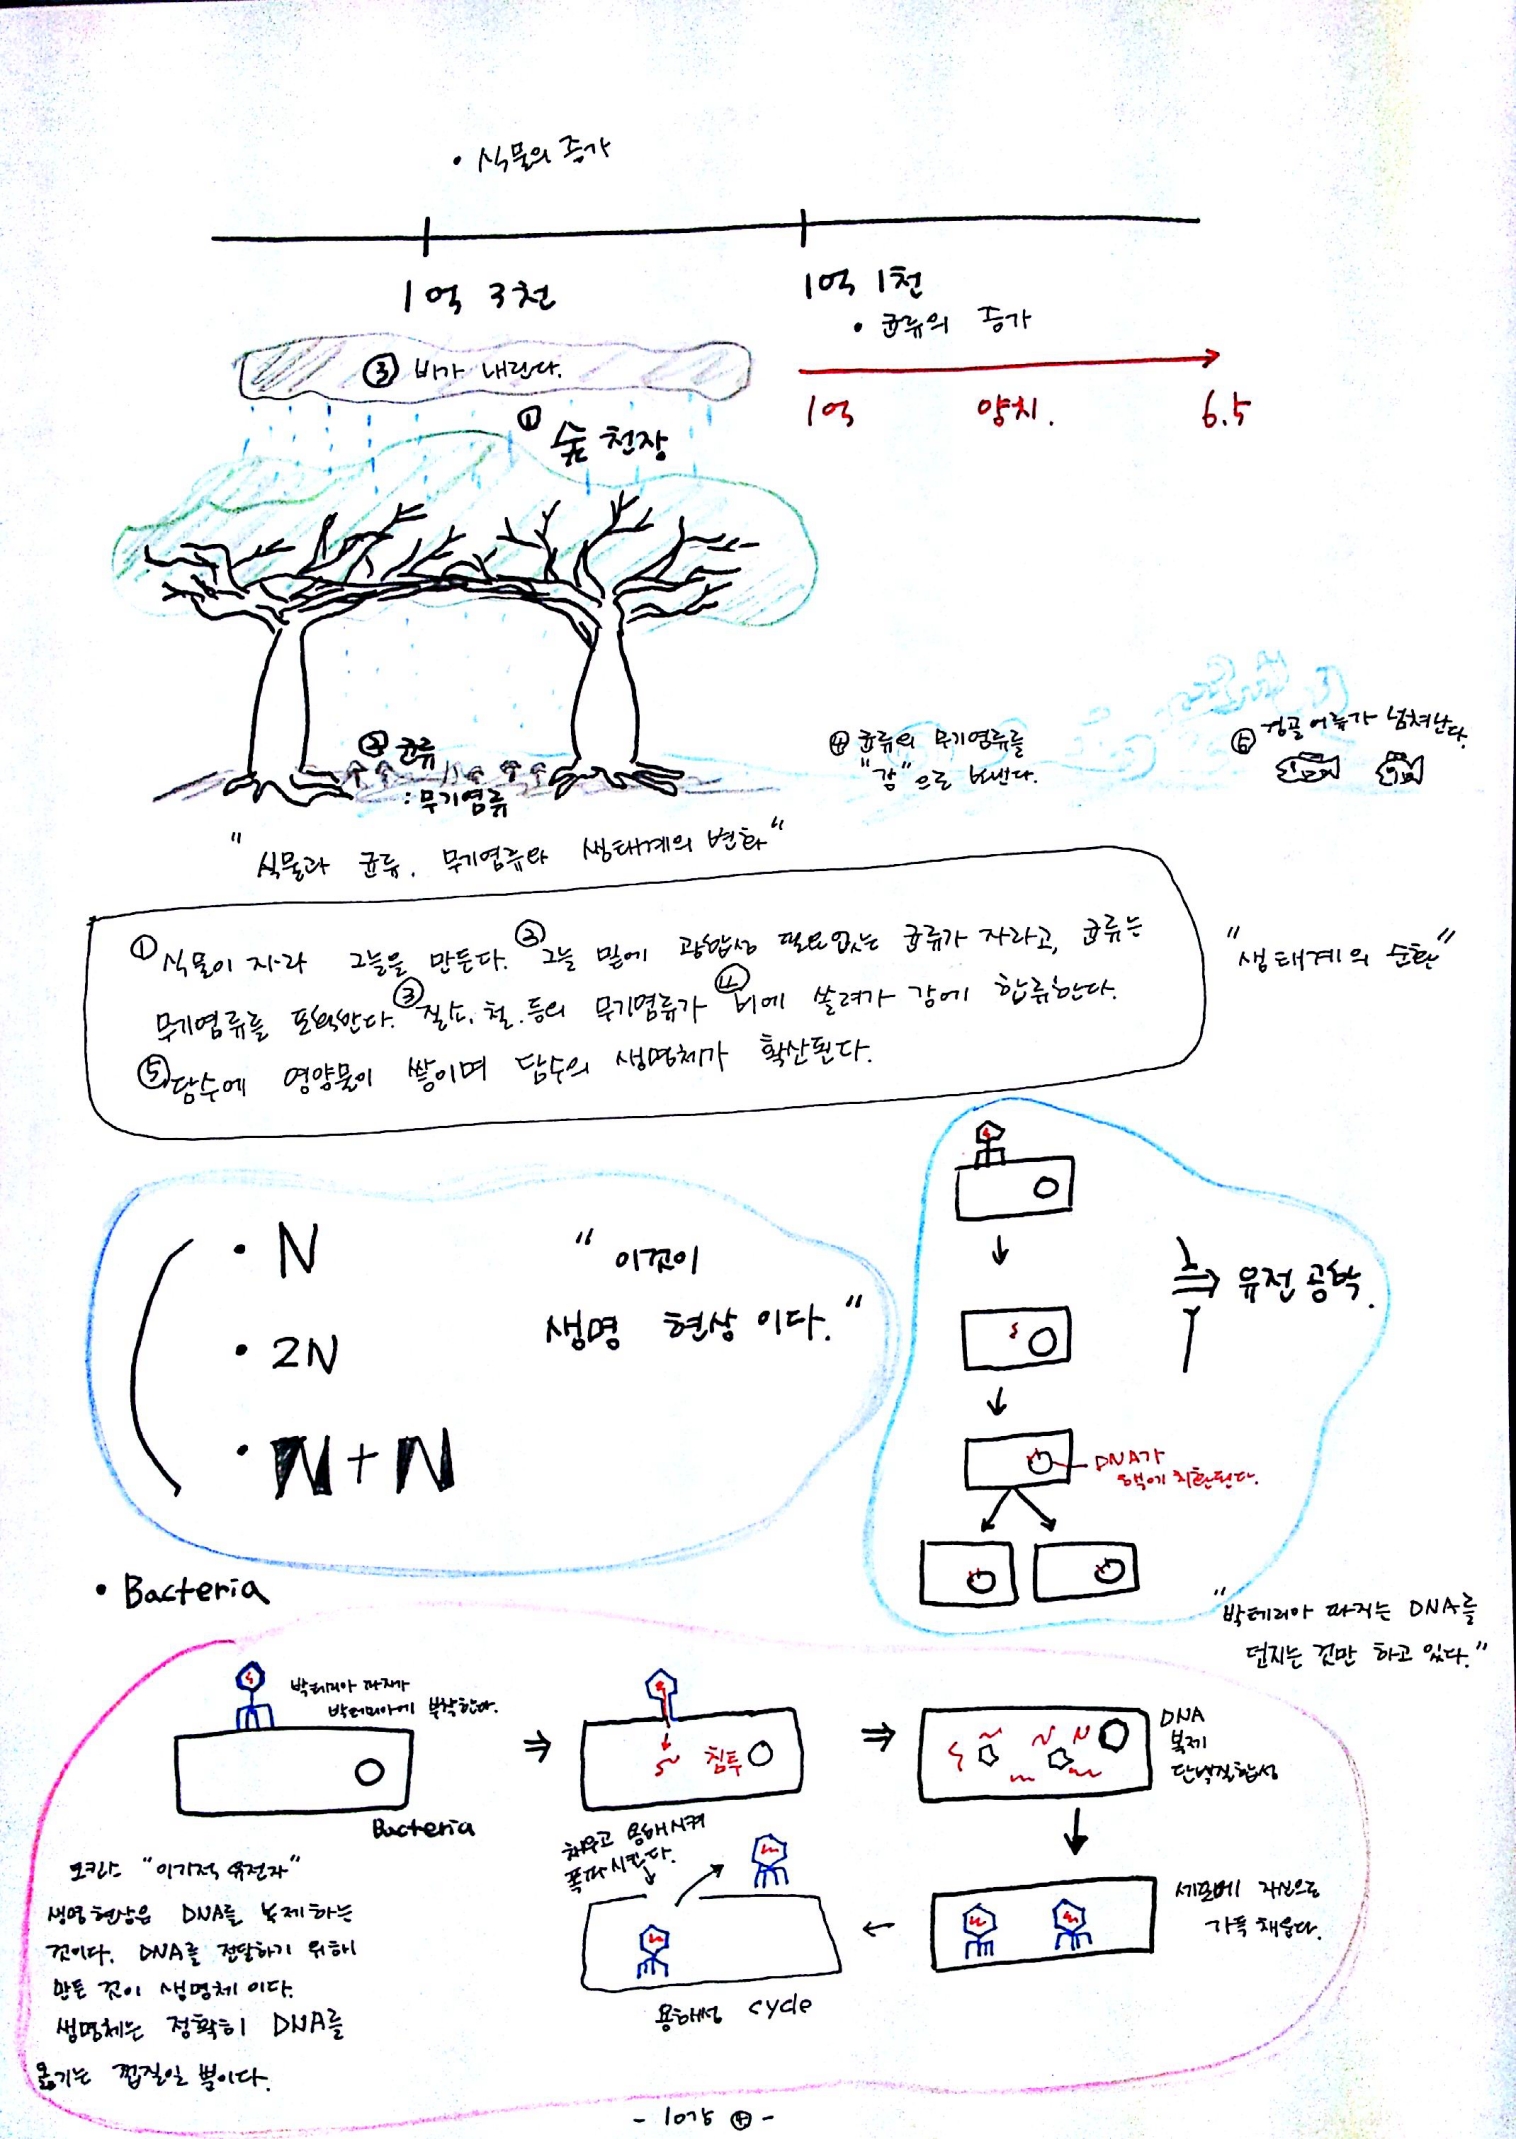 • 식물의 증가
1억 3천
1억 1천
• 균류의 증가
1억 양치. 6.5
③ 비가 내린다.
① 숲 천장
② 균류
: 무기염류
④ 균류의 무기염류를
"강"으로 보낸다.
⑥ 경골어류가 넘쳐난다.
"식물과 균류, 무기염류와 생태계의 변화"
① 식물이 자라 그늘을 만든다. ② 그늘 밑에 광합성 필요없는 균류가 자라고, 균류는
무기염류를 포획한다. ③ 질소, 철, 등의 무기염류가 ④ 비에 쓸려가 강에 합류한다.
⑤ 담수에 영양물이 쌓이며 담수의 생명체가 확산된다.
"생태계의 순환"
• N
• 2N
• N + N
"이것이
생명 현상이다."
⇒ 유전공학.
DNA가
핵에 치환된다.
"박테리아 파지는 DNA를
던지는 것만 하고 있다."
• Bacteria
박테리아 파지가
박테리아에 부착한다.
Bacteria
침투
DNA
복제
단백질합성
세포에 자신으로
가득 채운다.
채우고 용해시켜
폭파시킨다.
용해성 cycle
도킨스 "이기적 유전자"
생명현상은 DNA를 복제하는
것이다. DNA를 전달하기 위해
만든 것이 생명체이다.
생명체는 정확히 DNA를
옮기는 껍질일 뿐이다.
- 10강 ④ -